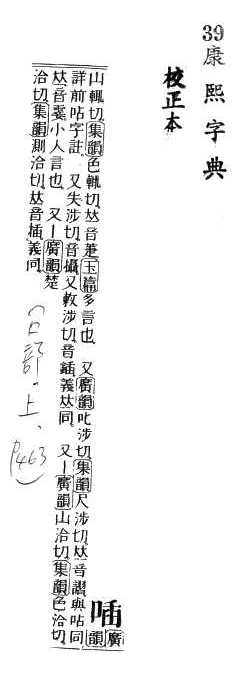 39康熙字典
校正本
喢廣韻
山輒切集韻色輒切𠀤音萐玉篇多言也 又廣韻叱涉切集韻尺涉切𠀤音讘與呫同
詳前呫字註 又失涉切音攝又敕涉切音鍤義𠀤同 又丨廣韻山洽切集韻色洽切
𠀤音霎小人言也 又丨廣韻楚
洽切集韻測洽切𠀤音插義同
(口部.上、P463)